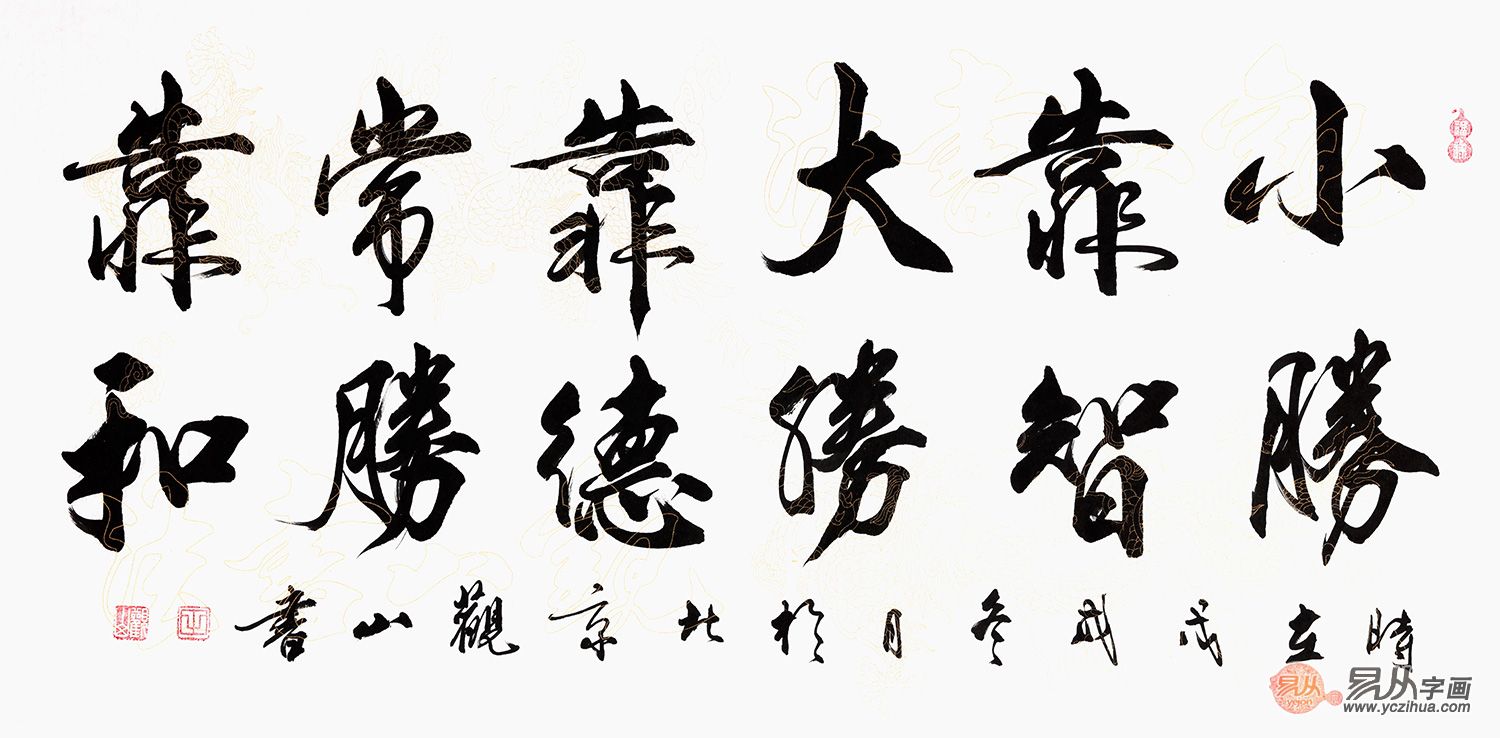 小勝
靠智
大勝
靠德
常勝
靠和
時在戊戌冬月於北京觀山書
易从字画
www.yczihua.com
易从
yicjon